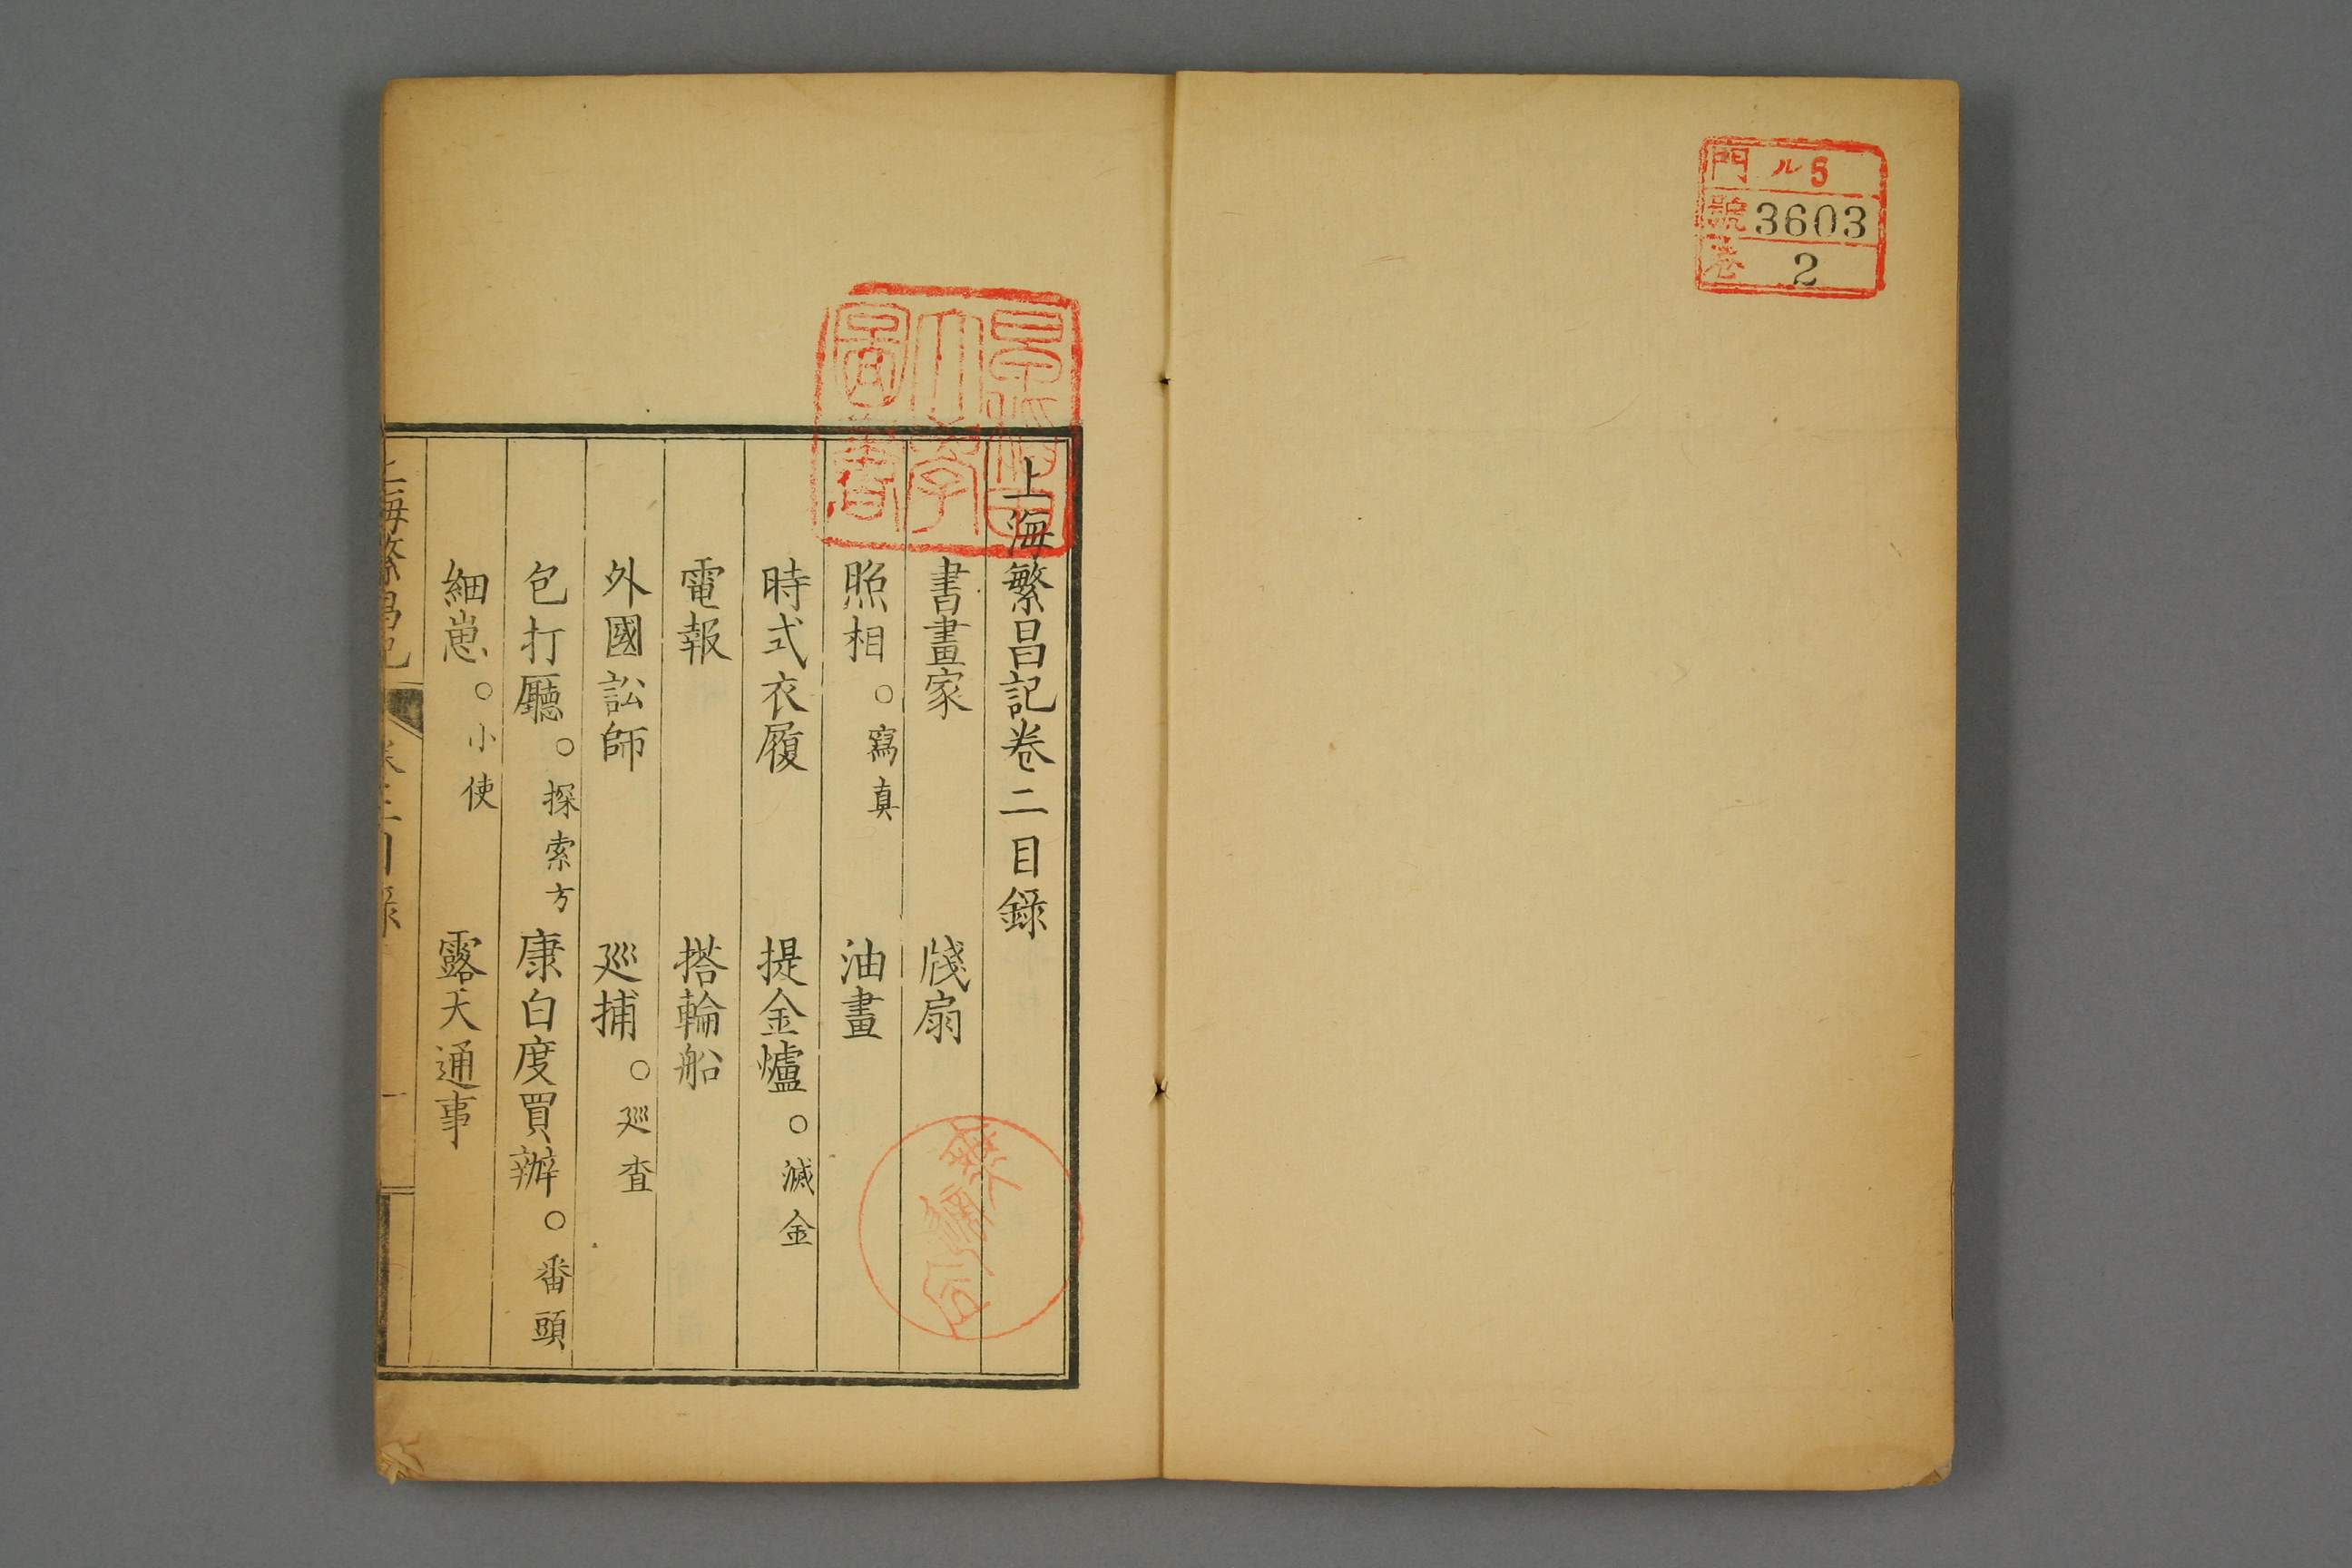 門 ル5
號 3603
卷 2
上海繁昌記卷二目錄
書畫家 牋扇
照相。寫真 油畫
時式衣履 提金爐。滅金
電報 搭輪船
外國訟師 巡捕。巡査
包打廳。探索方 康白度買辦。番頭
細崽。小使 露天通事